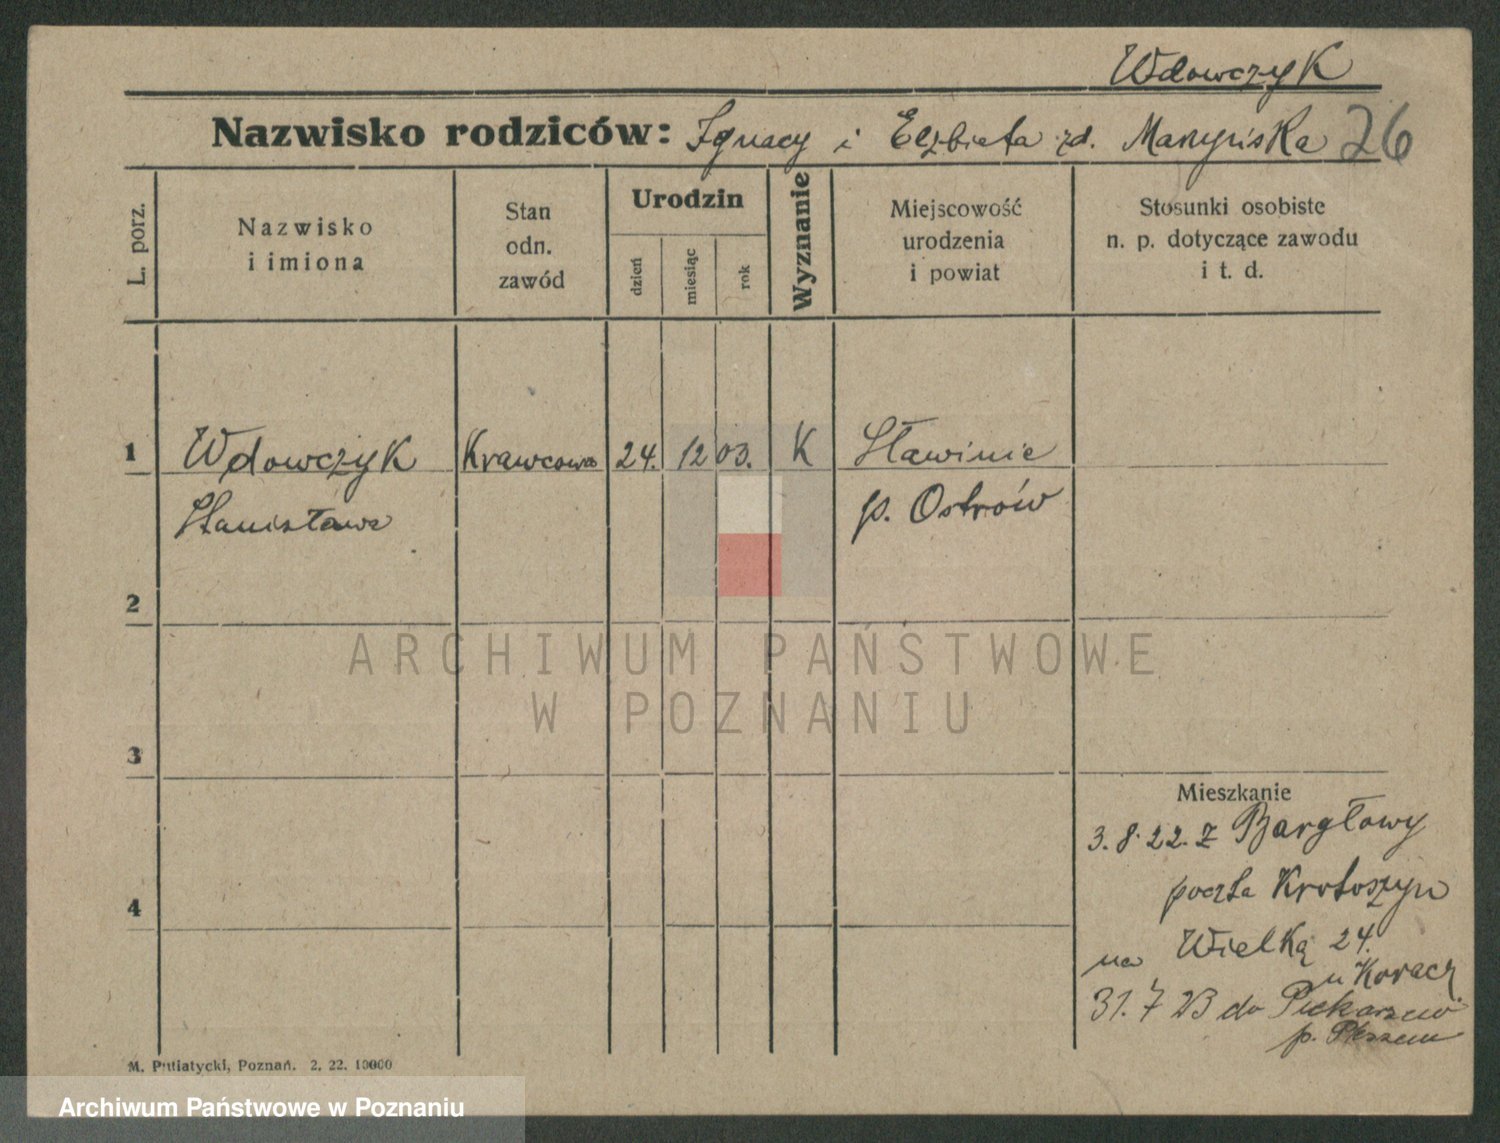 Wdowczyk
Nazwisko rodziców: Ignacy i Elzbieta zd. 26
L. porz.
Nazwisko
i imiona
Stan
odn.
zawód
Urodzin
dzień
miesiąc
rok
Wyznanie
Miejscowość
urodzenia
i powiat
Stosunki osobiste
n. p. dotyczące zawodu
i t. d.
1 Wdowczyk Krawcowa 24. 12 03. K Sławinie
Stanisława p. Ostrów
2
ARCHIWUM PAŃSTWOWE
W POZNANIU
3
Mieszkanie
3. 8. 22. z Bargłowy
poczta Krotoszyn
4
na Wielką 24.
u Koracz
31. 7 23 do Piekarzew
p. Pleszew
M. Putiatycki, Poznań. 2. 22. 10000
Archiwum Państwowe w Poznaniu